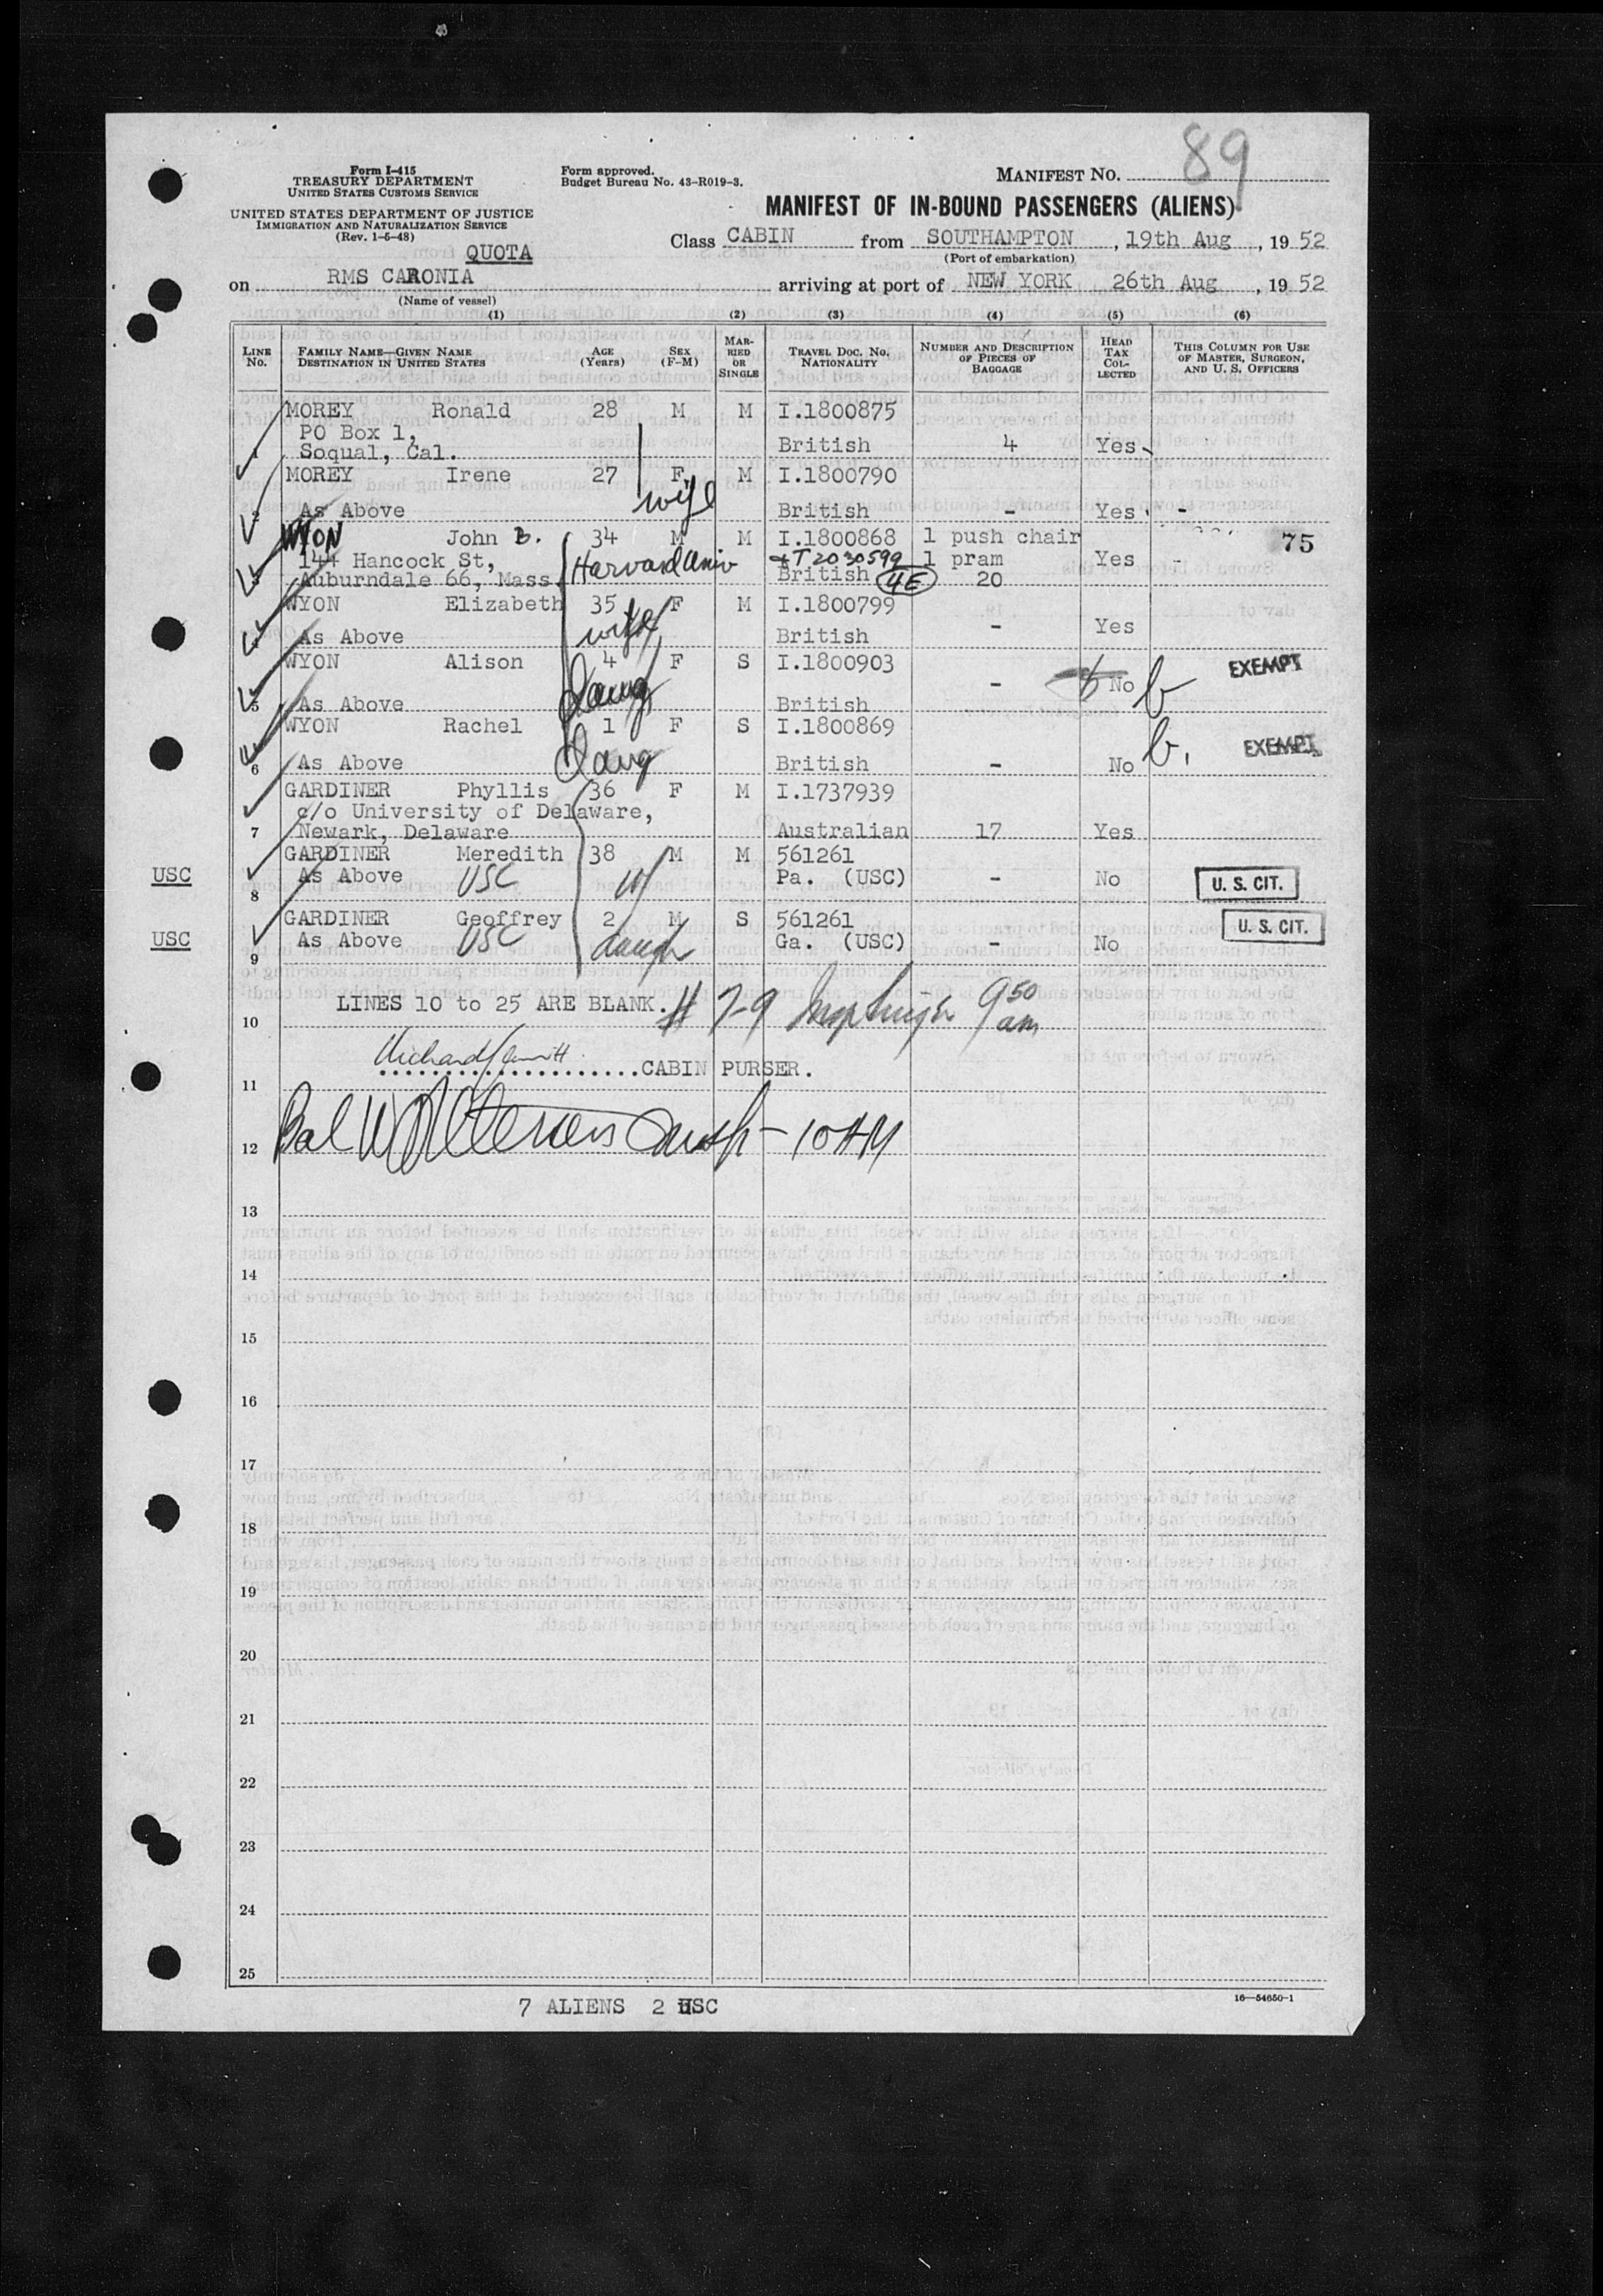 89
Form I-415
TREASURY DEPARTMENT
UNITED STATES CUSTOMS SERVICE
UNITED STATES DEPARTMENT OF JUSTICE
IMMIGRATION AND NATURALIZATION SERVICE
(Rev. 1-5-48)
Form approved.
Budget Bureau No. 43-R019-3.
MANIFEST NO.
MANIFEST OF IN-BOUND PASSENGERS (ALIENS)
QUOTA
Class CABIN from SOUTHAMPTON, 19th Aug, 1952
(Port of embarkation)
on RMS CARONIA arriving at port of NEW YORK 26th Aug, 1952
(Name of vessel)
(1) (2) (3) (4) (5) (6)
LINE No. FAMILY NAME—GIVEN NAME DESTINATION IN UNITED STATES AGE (Years) SEX (F-M) MARRIED OR SINGLE TRAVEL DOC. NO. NATIONALITY NUMBER AND DESCRIPTION OF PIECES OF BAGGAGE HEAD TAX COLLECTED THIS COLUMN FOR USE OF MASTER, SURGEON, AND U. S. OFFICERS
MOREY Ronald 28 M M I.1800875
PO Box 1,
1 Soqual, Cal. British 4 Yes
MOREY Irene 27 F M I.1800790
wife
2 As Above British - Yes -
WYON John B. 34 M M I.1800868 1 push chair 75
144 Hancock St, Harvard Univ T2030599 1 pram Yes -
3 Auburndale 66, Mass. British 4E 20
WYON Elizabeth 35 F M I.1800799
wife
4 As Above British - Yes
WYON Alison 4 F S I.1800903 EXEMPT
Daug - No b
5 As Above British
WYON Rachel 1 F S I.1800869
Daug b. EXEMPT
6 As Above British - No
GARDINER Phyllis 36 F M I.1737939
c/o University of Delaware,
7 Newark, Delaware Australian 17 Yes
GARDINER Meredith 38 M M 561261
USC As Above USC Pa. (USC) - No U. S. CIT.
8
GARDINER Geoffrey 2 M S 561261 U. S. CIT.
USC As Above USC daugh Ga. (USC) - No
9
LINES 10 to 25 ARE BLANK. # 7-9 9 50 am
10
CABIN PURSER.
11
12 - 10 AM
13
14
15
16
17
18
19
20
21
22
23
24
25
7 ALIENS 2 USC
16—54650-1